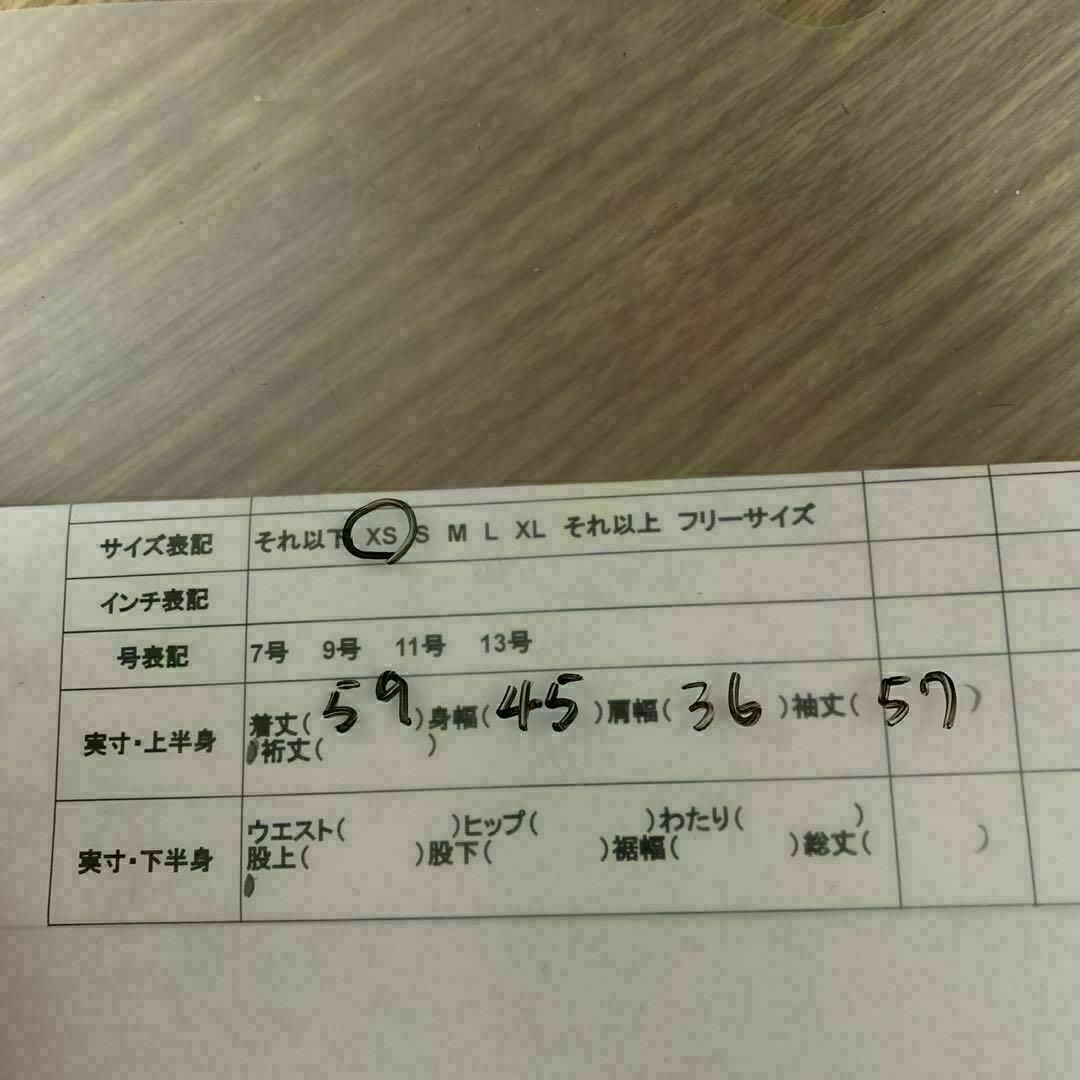 サイズ表記 それ以下 XS S M L XL それ以上 フリーサイズ
インチ表記
号表記 7号 9号 11号 13号
実寸・上半身 着丈( 59 )身幅( 45 )肩幅( 36 )袖丈( 57 )
裄丈( )
実寸・下半身 ウエスト( )ヒップ( )わたり( )
股上( )股下( )裾幅( )総丈( )